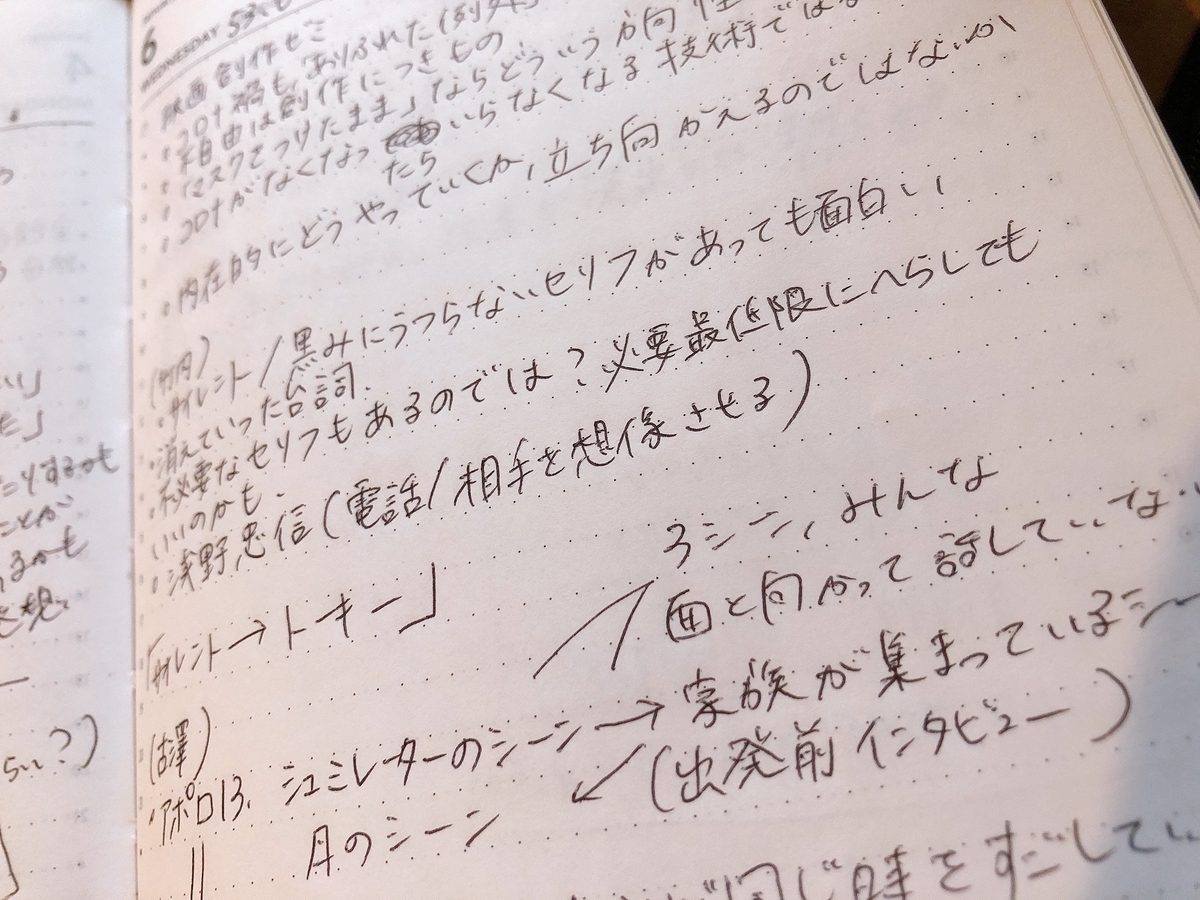 6
WEDNESDAY
映画創作ゼミ
・コロナ禍も、ありふれた(例外
・自由は創作につきもの
・「マスクをつけたまま」ならどういう方向性
・コロナがなくなったらいらなくなる技術では
・内在的にどうやっていくか、立ち向かえるのではないか
(竹内)
・サイレント/黒みにうつらないセリフがあっても面白い
・消えていった台詞.
・必要なセリフもあるのでは?必要最低限にへらしても
いいのかも.
・浅野忠信(電話/相手を想像させる)
「サイレント→トーキー」
3シーン、みんな
面と向かって話していない
(古澤)
・アポロ13. シュミレーターのシーン→家族が集まっているシー
(出発前インタビュー)
月のシーン
同じ時をすごしてい
い」
た」
たりするかも
ことが
るかも
を想
らい?)